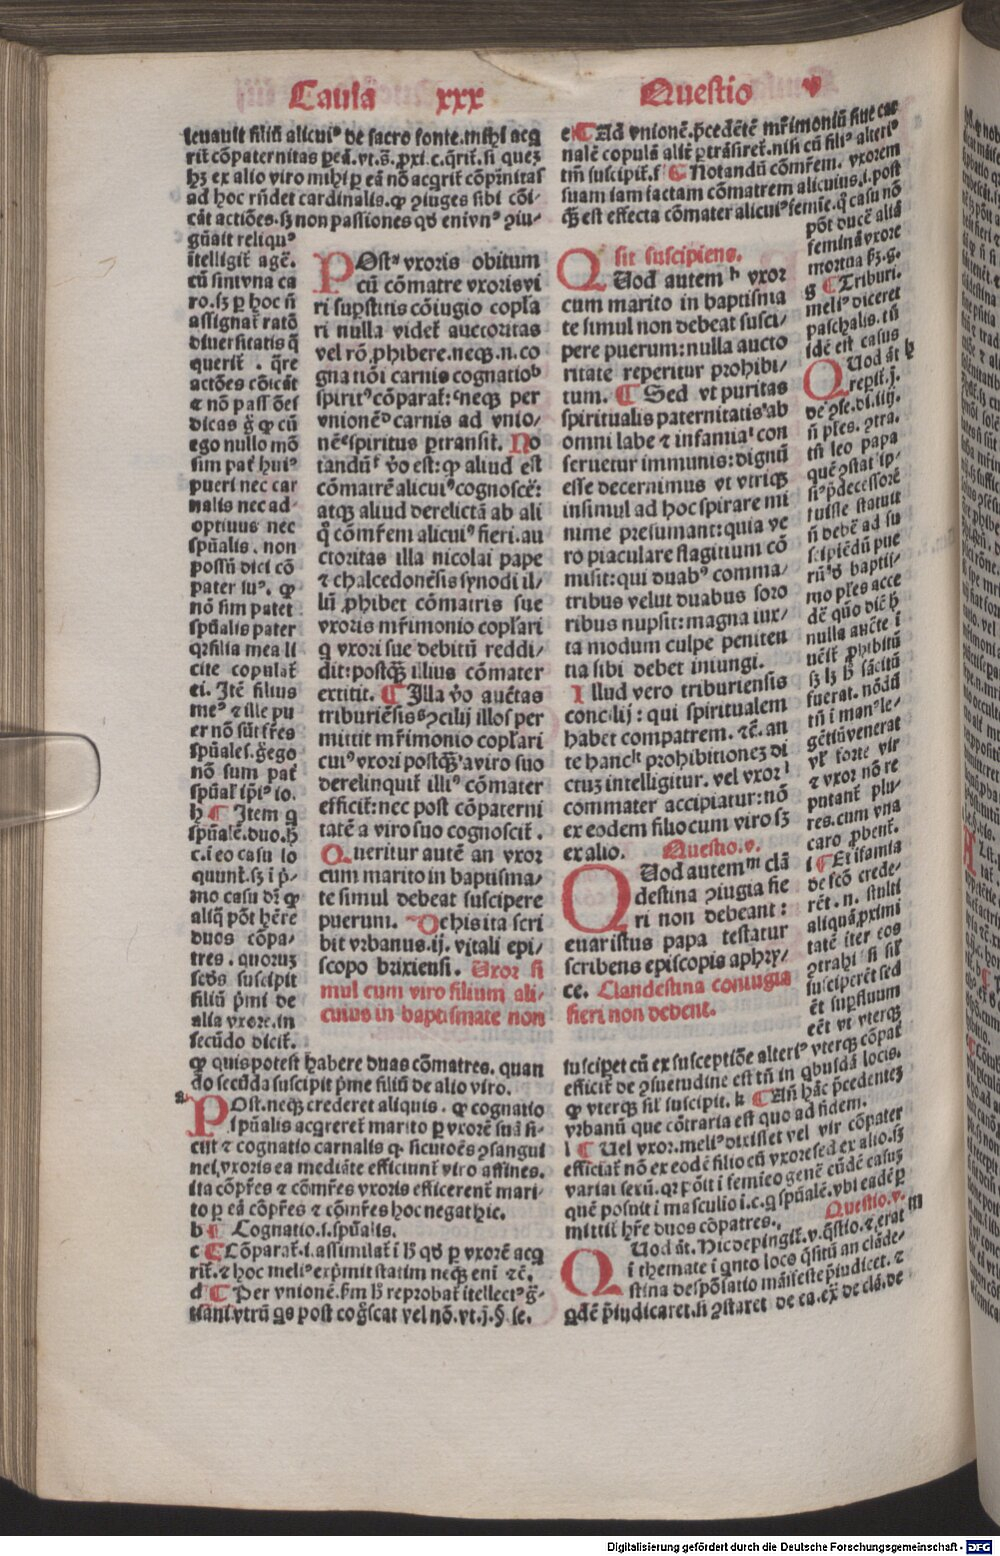 Causa xxx Questio v
leuauit filiū alicuiꝰ de sacro fonte. mihi acq
rit̄ cōpaternitas ꝑ eā. vt. s̄. ꝓxi. c. q̄rit̄. si quez
hꝫ ex alio viro mihi ꝑ eā nō acgrit̄ cōpr̄nitas
ad hoc rn̄det cardinalis. ꝙ ꝯiuges sibi cōi-
cāt actiōes. sꝫ non passiones
gūait reliquꝰ
itelligit̄ agē.
cū sint vna ca
ro. sꝫ ꝑ hoc n̄
assignat̄ ratō
diuersitatis q̄
querit̄. q̄re
actōes cōicāt
ego nullo mō
sim pat̄ huiꝰ
pueri nec car
nalis nec ad-
optiuus nec
spūalis. non
possū dici cō
pater suꝰ. ꝙ
nō sim pater
spūalis pater
cite copulat̄
ei. Itē filius
meꝰ ⁊ ille pu
er nō sūt fr̄es
spūales. g̈ ego
nō sum pat̄
h ¶ Item q
spūalē. duo. h̄
c. i eo casu lo
quunt̄. sꝫ i ṗ-
mo casu dr̄ ꝙ
aliq̄ pōt hr̄e
duos cōpa-
tres. quorum
scds suscipit
filiū ṗmi de
alia vxore. in
secūdo dicit̄.
ꝙ quis potest habere duas cōmatres. quan
do secūda suscipit ṗme filiū de alio viro.
Postᵃ vxoris obitum
cū cōmatre vxoris vi
ri suꝑstitis cōiugio copla
ri nulla videt̄ auctoritas
vel rō ꝓhibere. neqꝫ. n. co
gnatiōi carnis cognatioᵇ
spiritꝰ cōparat̄: ᶜneqꝫ per
vnionēᵈ carnis ad vnio-
nēᵉ spiritus ꝑtransit̄. No
tandūᶠ v̄o est: ꝙ aliud est
cōmatrē alicuiꝰ cognoscē:
atqꝫ aliud derelictā ab ali
q̊ cōmr̄em alicuiꝰ fieri. au
ctoritas illa nicolai pape
⁊ chalcedonēsis synodi il-
lū ꝓhibet cōmatris sue
vxoris mr̄imonio coplari
q vxori sue debitū reddi-
dit: postqꝫ illius cōmater
extitit. ¶ Illa v̄o auctas
triburiēsisᵍ ꝯcilij illos per
mittit mr̄imonio coplari
cuiꝰ vxori postqꝫ a viro suo
derelinquit̄ illiꝰ cōmater
efficit̄: nec post cōpaterni
tatē a viro suo cognoscit̄.
Queritur autē an vxor
cum marito in baptisma-
te simul debeat suscipere
puerum. De his ita scri
bit vrbanus. ij. vitali epi-
scopo brixiensi. Uxor si
mul cum viro filium ali-
cuius in baptismate non
a Post. neqꝫ crederet aliquis. ꝙ cognatio
spūalis acqreret̄ marito ꝑ vxorē suā si-
cut ⁊ cognatio carnalis q̄ sicut oēs ꝯsangui
nei. vxoris ea mediāte efficiunt̄ viro affines.
ita cōpr̄es ⁊ cōmr̄es vxoris efficerent̄ mari-
to ꝑ eā cōpr̄es ⁊ cōmr̄es hoc negat hic.
b ¶ Cognatio. s. spūalis.
c ¶ Cōparat̄. i. assimilat̄ i h̄ qd̄ ꝑ vxorē acq
rit̄. ⁊ hoc meliꝰ exp̄mit statim neqꝫ eni ⁊c̄.
d ¶ Per vnionē. ẜm h̄ reprobat̄ itellectꝰ g̈-
tiani. vtrū qs post cog̈scat vel nō. vt. j. §. se.
e ¶ Ad vnionē. p̄cedētē mr̄imoniū siue car
nalē copulā alit̄ ꝑtrāsiret. nisi cū filiꝰ alteriꝰ
tm̄ suscipit̄. f ¶ Notandū cōmr̄em. vxorem
suam iam factam cōmatrem alicuius. i. post
qꝫ est effecta cōmater alicuiꝰ femie. q̄ casu nō
pōt ducē aliā
feminā vxore
mortua
g ¶ Triburi.
meliꝰ diceret
paschalis. tn̄
idē est casus
sit suscipiens.
Quod autemʰ vxor
cum marito in baptisma
te simul non debeat susci-
pere puerum: nulla aucto
ritate reperitur prohibi-
tum. ¶ Sed vt puritas
spiritualis paternitatisⁱ ab
omni labe ⁊ infamia con
seruetur immunis: dignū
esse decernimus vt vtriqꝫ
insimul ad hoc spirare mi
nime presumant: quia ve
ro piaculare flagitium cō
misit: qui duabꝰ comma-
tribus velut duabus soro
ribus nupsit: magna iux-
ta modum culpe peniten
tia sibi debet iniungi.
Illud vero triburiensis
concilij: qui spiritualem
habet compatrem. ⁊c̄. an
te hancᵏ prohibitionez di
ctuz intelligitur. vel vxorˡ
commater accipiatur: nō
ex eodem filio cum viro sꝫ
ex alio. Questio. v.
Quod autemᵐ clā
destina ꝯiugia fie
ri non debeant:
euaristus papa testatur
scribens episcopis aphry-
ce. Clandestina coniugia
fieri non debent.
Quod āt h
reꝑit̄. j.
de ꝯse. di. iiij.
n̄ pl̄es. ꝯtra.
tn̄ leo papa
siꝰ p̄decessorē
fuisse statuit
n̄ debē ad su
scipiēdū pue
rū d baptis-
mo pl̄es acce
dē
nulla auctē i
uēit̄ ꝓhibitū
fuerat. nōdū
gētiū venerat
vl̄ forte vir
⁊ vxor nō re
putant̄ plu-
res. cum vna
caro ꝓbent̄.
i ¶ Et ifamia
de scō crede-
rēt. n. stulti
aliquā ꝓximi
tatē iter eos
ꝯtrahi si sil̄
susciperēt sed
ēt suꝑfluum
eēt vt vterqꝫ
suscipet cū ex susceptiōe alteriꝰ vterqꝫ cōpat̄
efficit̄ de ꝯsuetudine est tn̄ in qbusdā locis.
ꝙ vterqꝫ sil̄ suscipit. k ¶ An̄ hāc p̄cedentez
vrbanū que cōtraria est quo ad fidem.
l ¶ Uel vxor. meliꝰ dixisset vel vir cōpater
efficiat̄ nō ex eodē filio cū vxore sed ex alio. sꝫ
variat sexū. qꝛ pōit i femieo genē eūdē casuz
quē posuit i masculio i. c. q spūalē. vbi eadē ꝑ
mittit̄ hr̄e duos cōpatres. Questio. v. m
Quod āt. Hic depingit̄. v. q̄stio. ⁊ erat
i themate i qnto loco q̄sitū an clāde-
stina despōsatio māifeste p̄iudicet. ⁊
qdē p̄iudicaret. si ꝯstaret de ea. ex̄ de clā. de
Digitalisierung gefördert durch die Deutsche Forschungsgemeinschaft - DFG